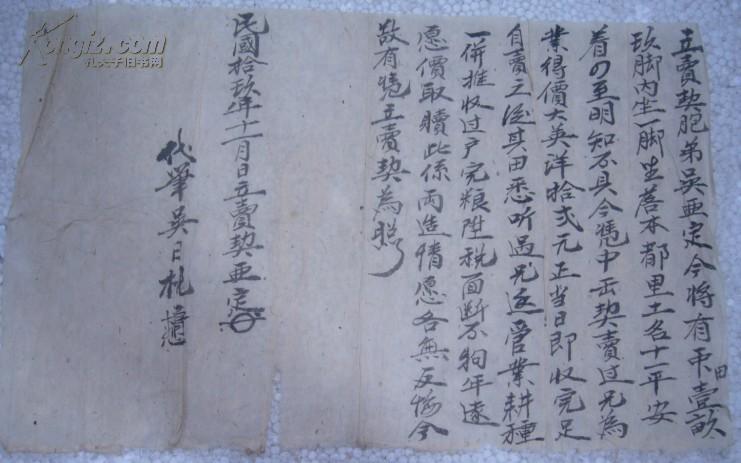 立賣契胞弟吳亜定今將有禾田壹畝
玖脚内坐一脚坐落本都里土名十一平安
着四至明知不具今憑中立契賣过兄為
業得價大英洋拾弍元正当日即收完足
自賣之後其田悉听過兄边管業耕種
一併推收过户完粮陞税面断不狥年遠
愿價取贖此係两造情愿各無反悔今
欲有憑立賣契為照
民國拾玖年十一月日立賣契亜定
代筆吳日札
Kongfz.com
孔夫子旧书网